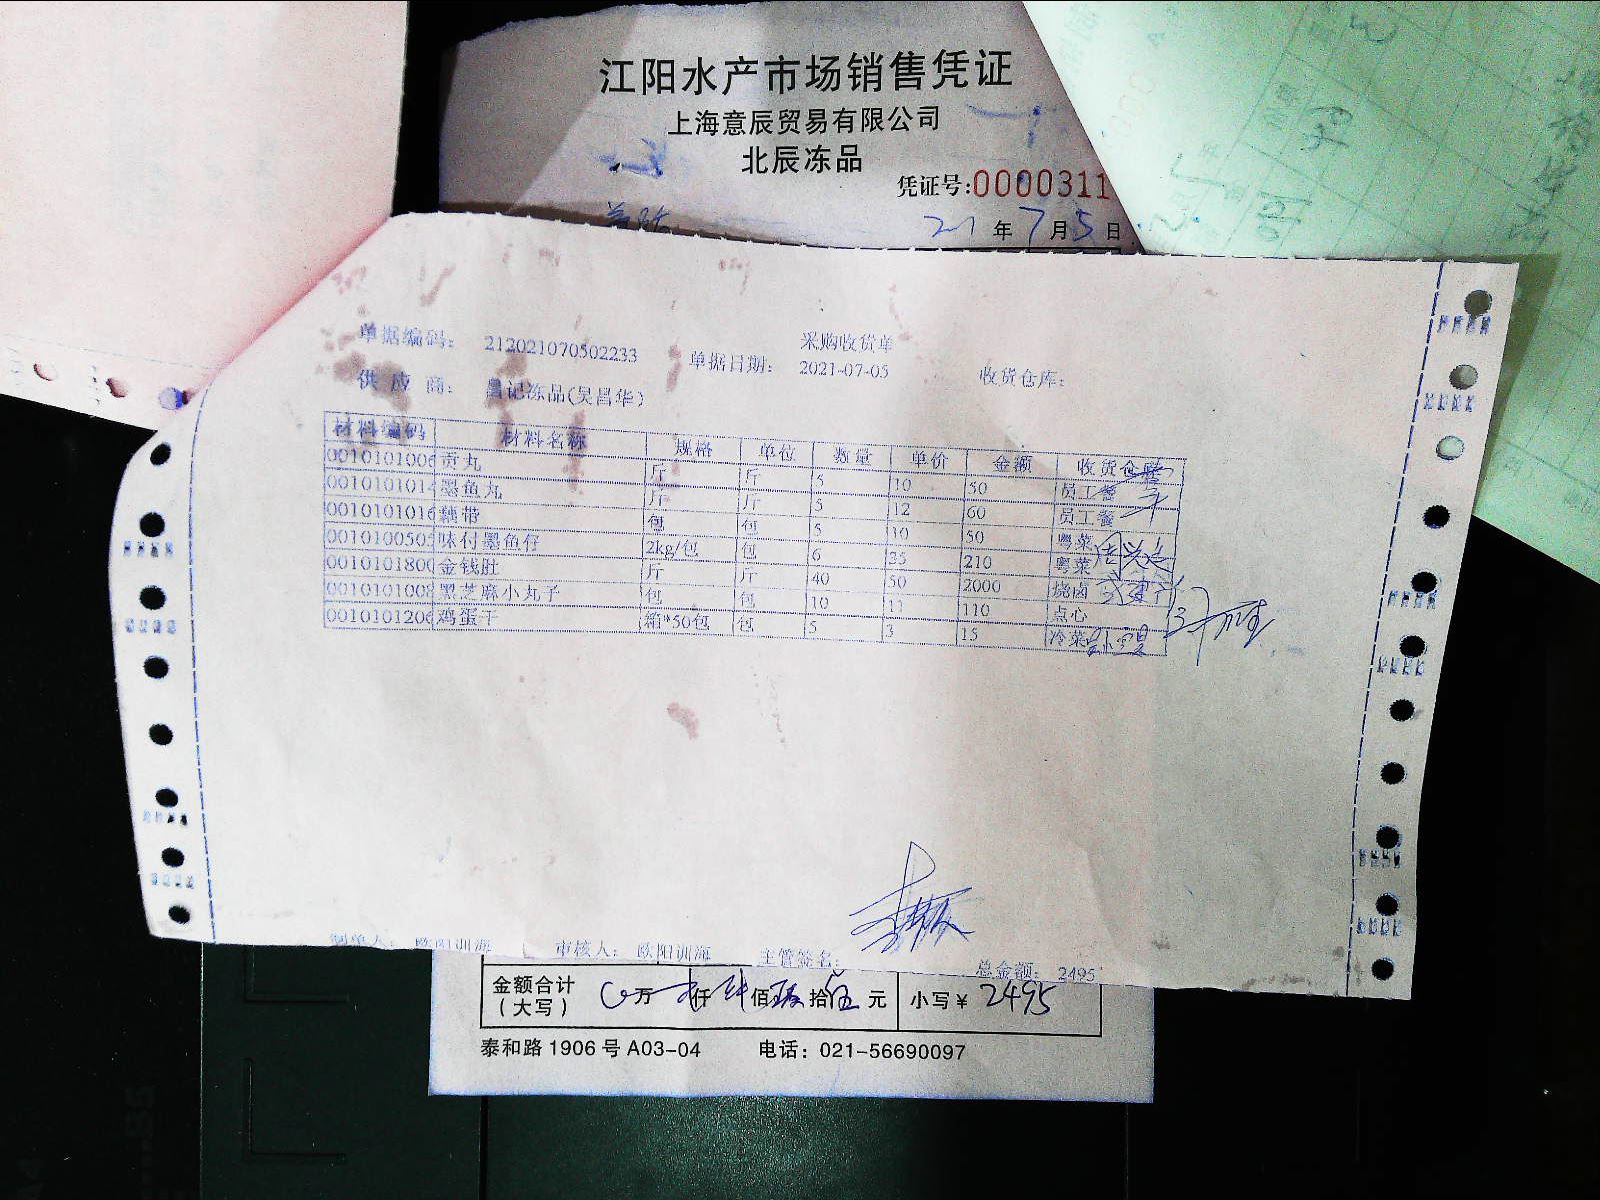 江阳水产市场销售凭证
上海意辰贸易有限公司
北辰冻品
凭证号:0000311
21 年 7 月 5 日
采购收货单
单据编码: 212021070502233 单据日期: 2021-07-05 收货仓库:
供 应 商: 昌记冻品(吴昌华)
材料编码 材料名称 规格 单位 数量 单价 金额 收货仓
0010101006 贡丸 斤 斤 5 10 50 员工餐
0010101014 墨鱼丸 斤 斤 5 12 60 员工餐
0010101016 藕带 包 包 5 10 50 粤菜
0010100505 味付墨鱼仔 2kg/包 包 6 35 210 粤菜
0010101800 金钱肚 斤 斤 40 50 2000 烧卤
0010101008 黑芝麻小丸子 包 包 10 11 110 点心
0010101206 鸡蛋干 箱*50包 包 5 3 15 冷菜
制单人: 欧阳训海 审核人: 欧阳训海 主管签名: 总金额: 2495
金额合计(大写) 万 仟 佰 拾 伍 元 小写¥ 2495
泰和路1906号A03-04 电话: 021-56690097